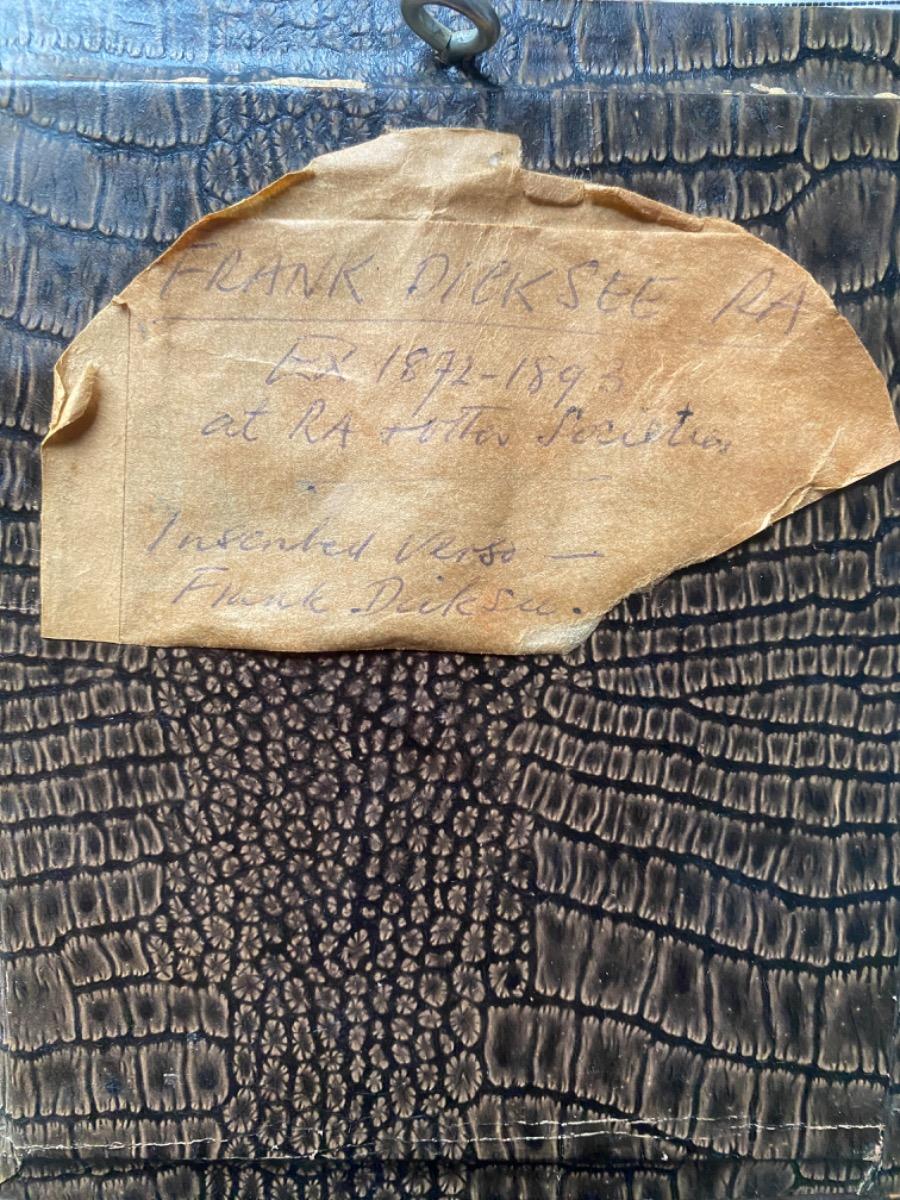 FRANK DICKSEE RA
Ex 1872-1893
at RA + other Societies
Inscribed Verso —
Frank Dicksee.